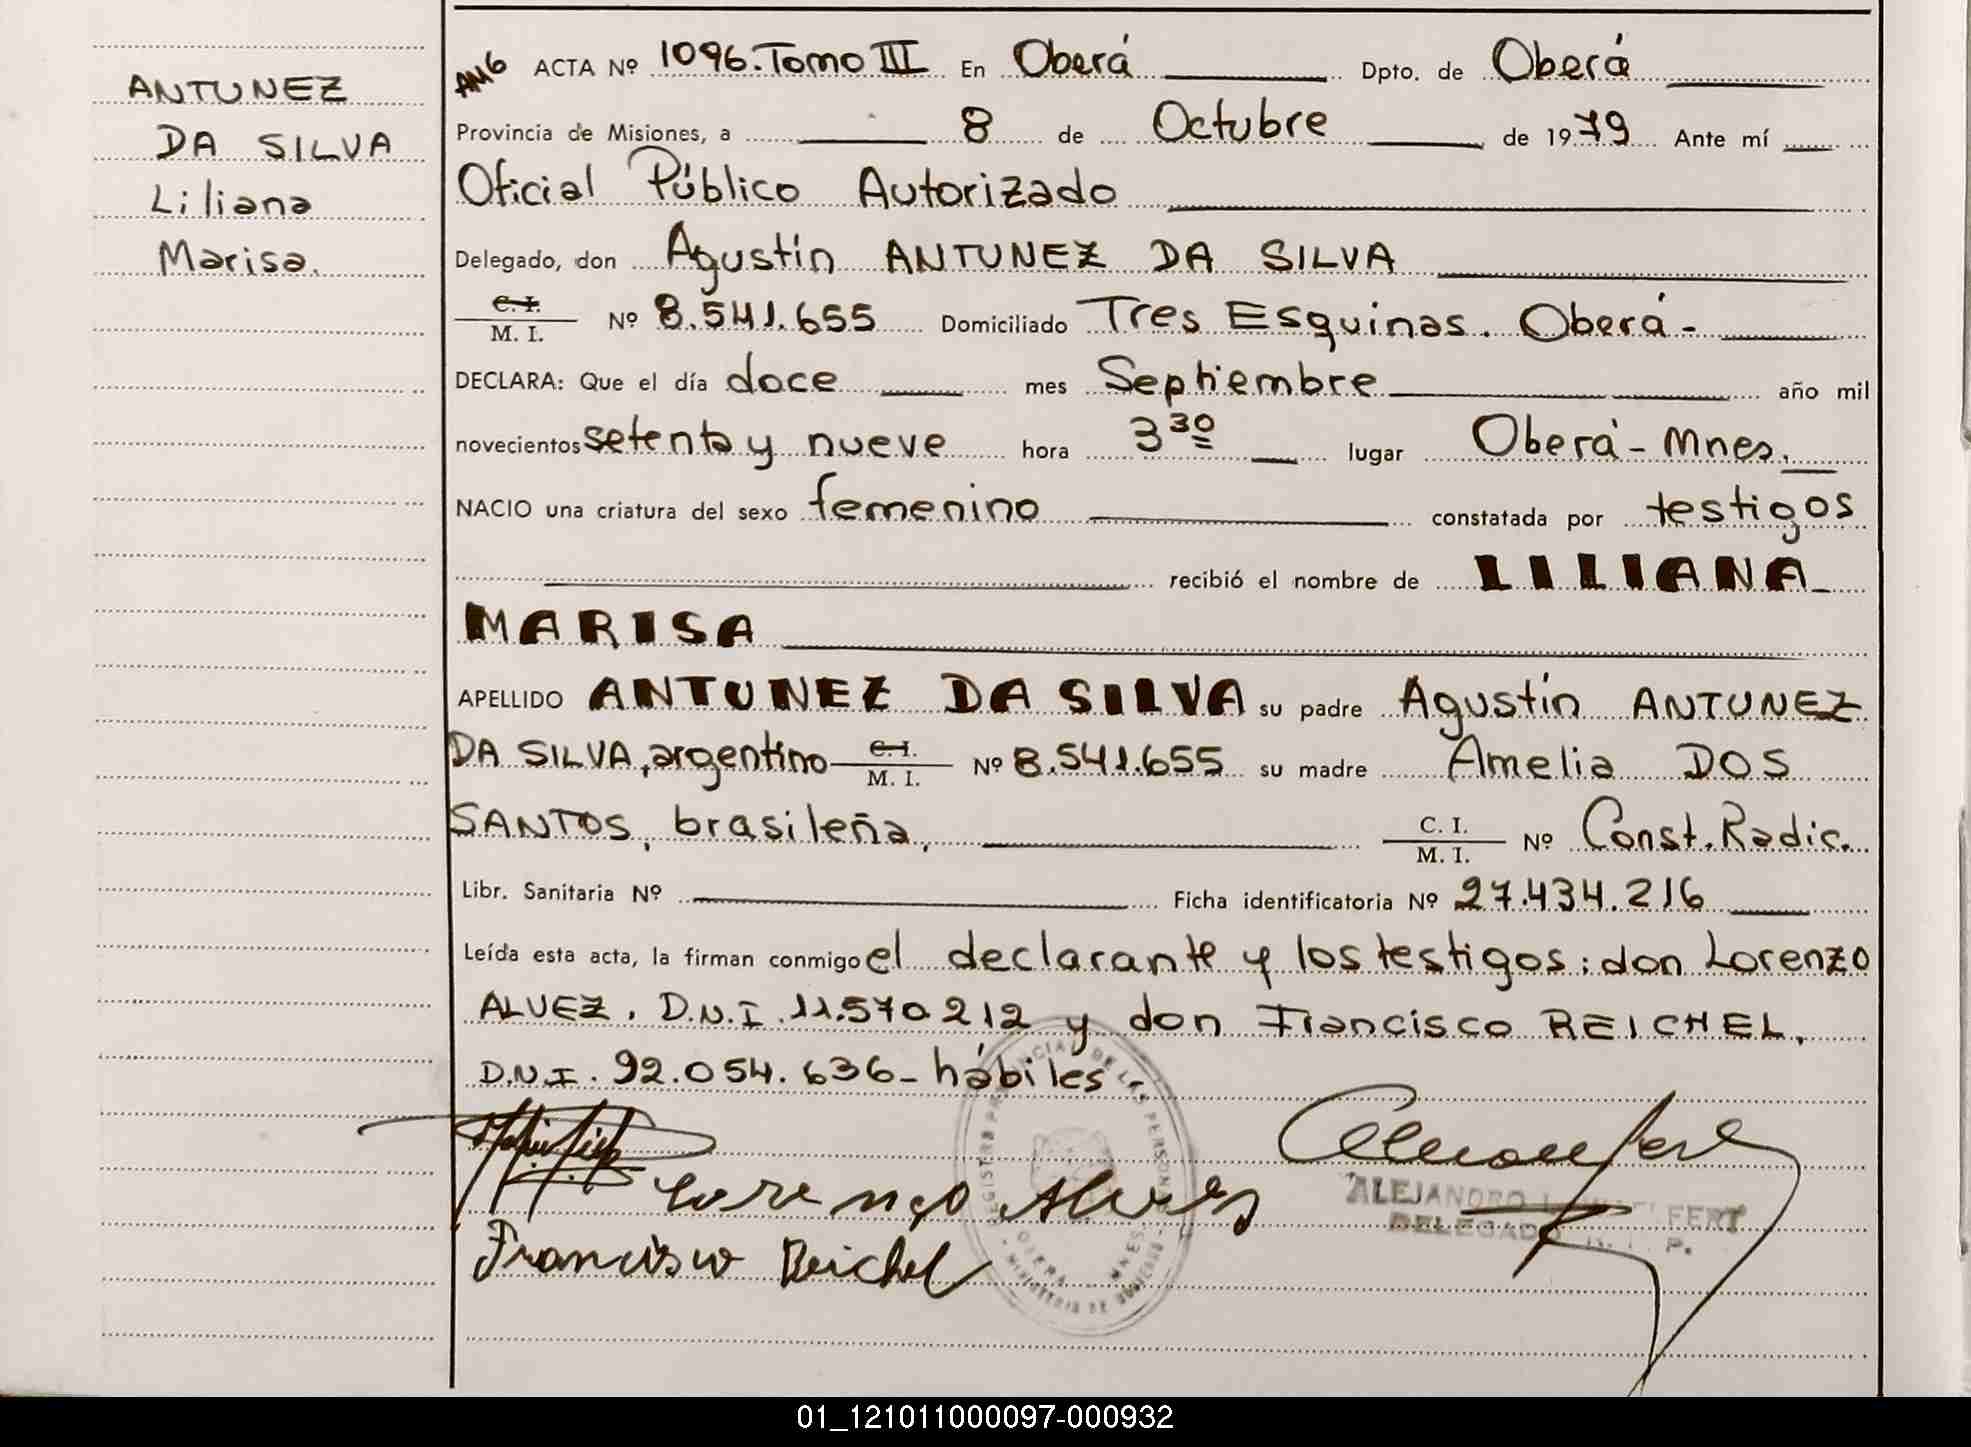 ANTUNEZ
DA SILVA
Liliana
Marisa.
ACTA Nº 1096. Tomo III En Oberá Dpto. de Oberá
Provincia de Misiones, a 8 de Octubre de 1979 Ante mí
Oficial Público Autorizado
Delegado, don Agustín ANTUNEZ DA SILVA
C. I.
M. I.
Nº 8.541.655 Domiciliado Tres Esquinas. Oberá -
DECLARA: Que el día doce mes Septiembre año mil
novecientos setenta y nueve hora 3 30 lugar Oberá - Mnes.
NACIO una criatura del sexo femenino constatada por testigos
recibió el nombre de LILIANA
MARISA
APELLIDO ANTUNEZ DA SILVA su padre Agustín ANTUNEZ
DA SILVA, argentino C. I. M. I. Nº 8.541.655 su madre Amelia DOS
SANTOS, brasileña, C. I. M. I. Nº Const. Radic.
Libr. Sanitaria Nº Ficha identificatoria Nº 27.434.216
Leída esta acta, la firman conmigo el declarante y los testigos: don Lorenzo
ALVEZ. D.N.I. 11.570.212 y don Francisco REICHEL,
D.N.I. 92.054.636 - hábiles -
Lorenzo Alves
Francisco Reichel
ALEJANDRO
DELEGADO
REGISTRO PROVINCIAL DE LAS PERSONAS
OBERA MNES.
MINISTERIO DE GOBIERNO
01_121011000097-000932